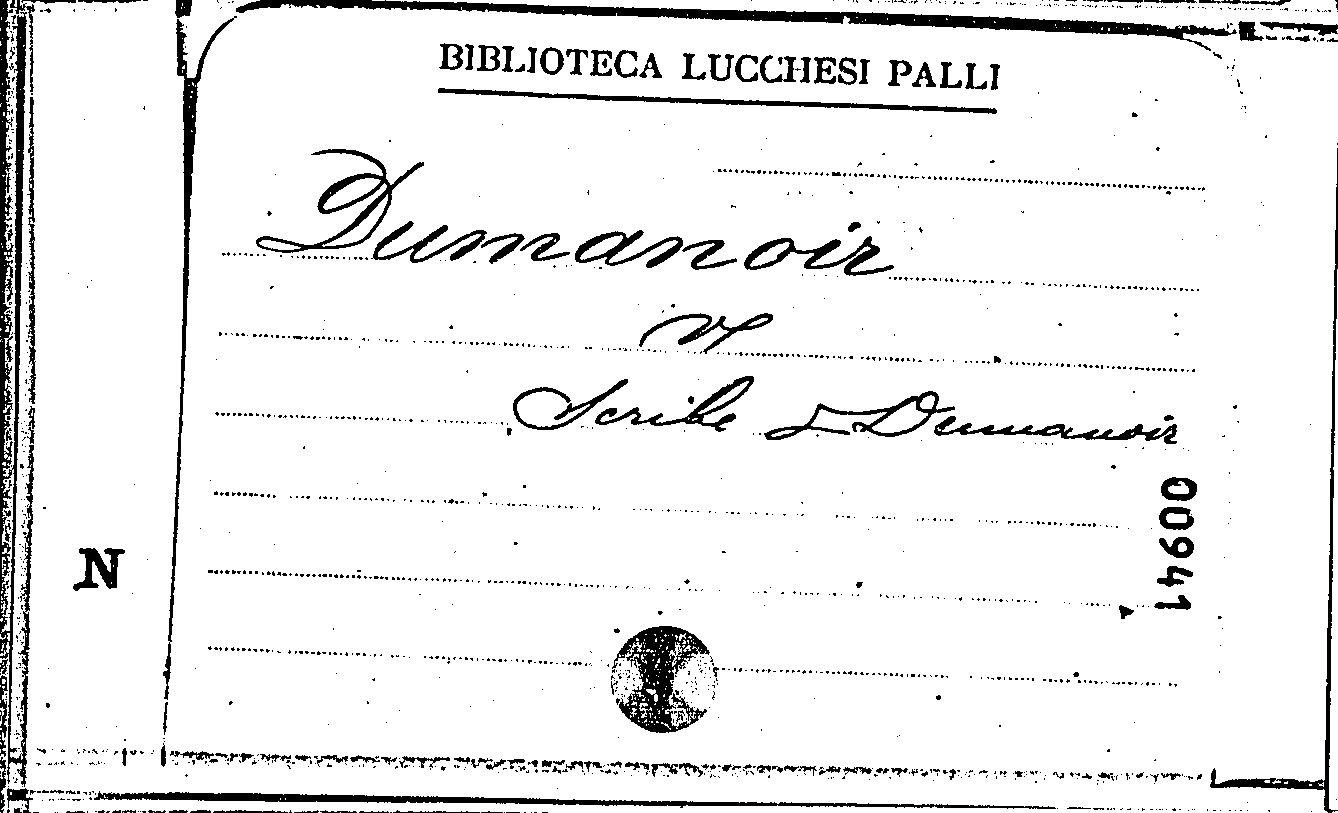 BIBLIOTECA LUCCHESI PALLI
Dumanoir
V
Scribe & Dumanoir
00941
N